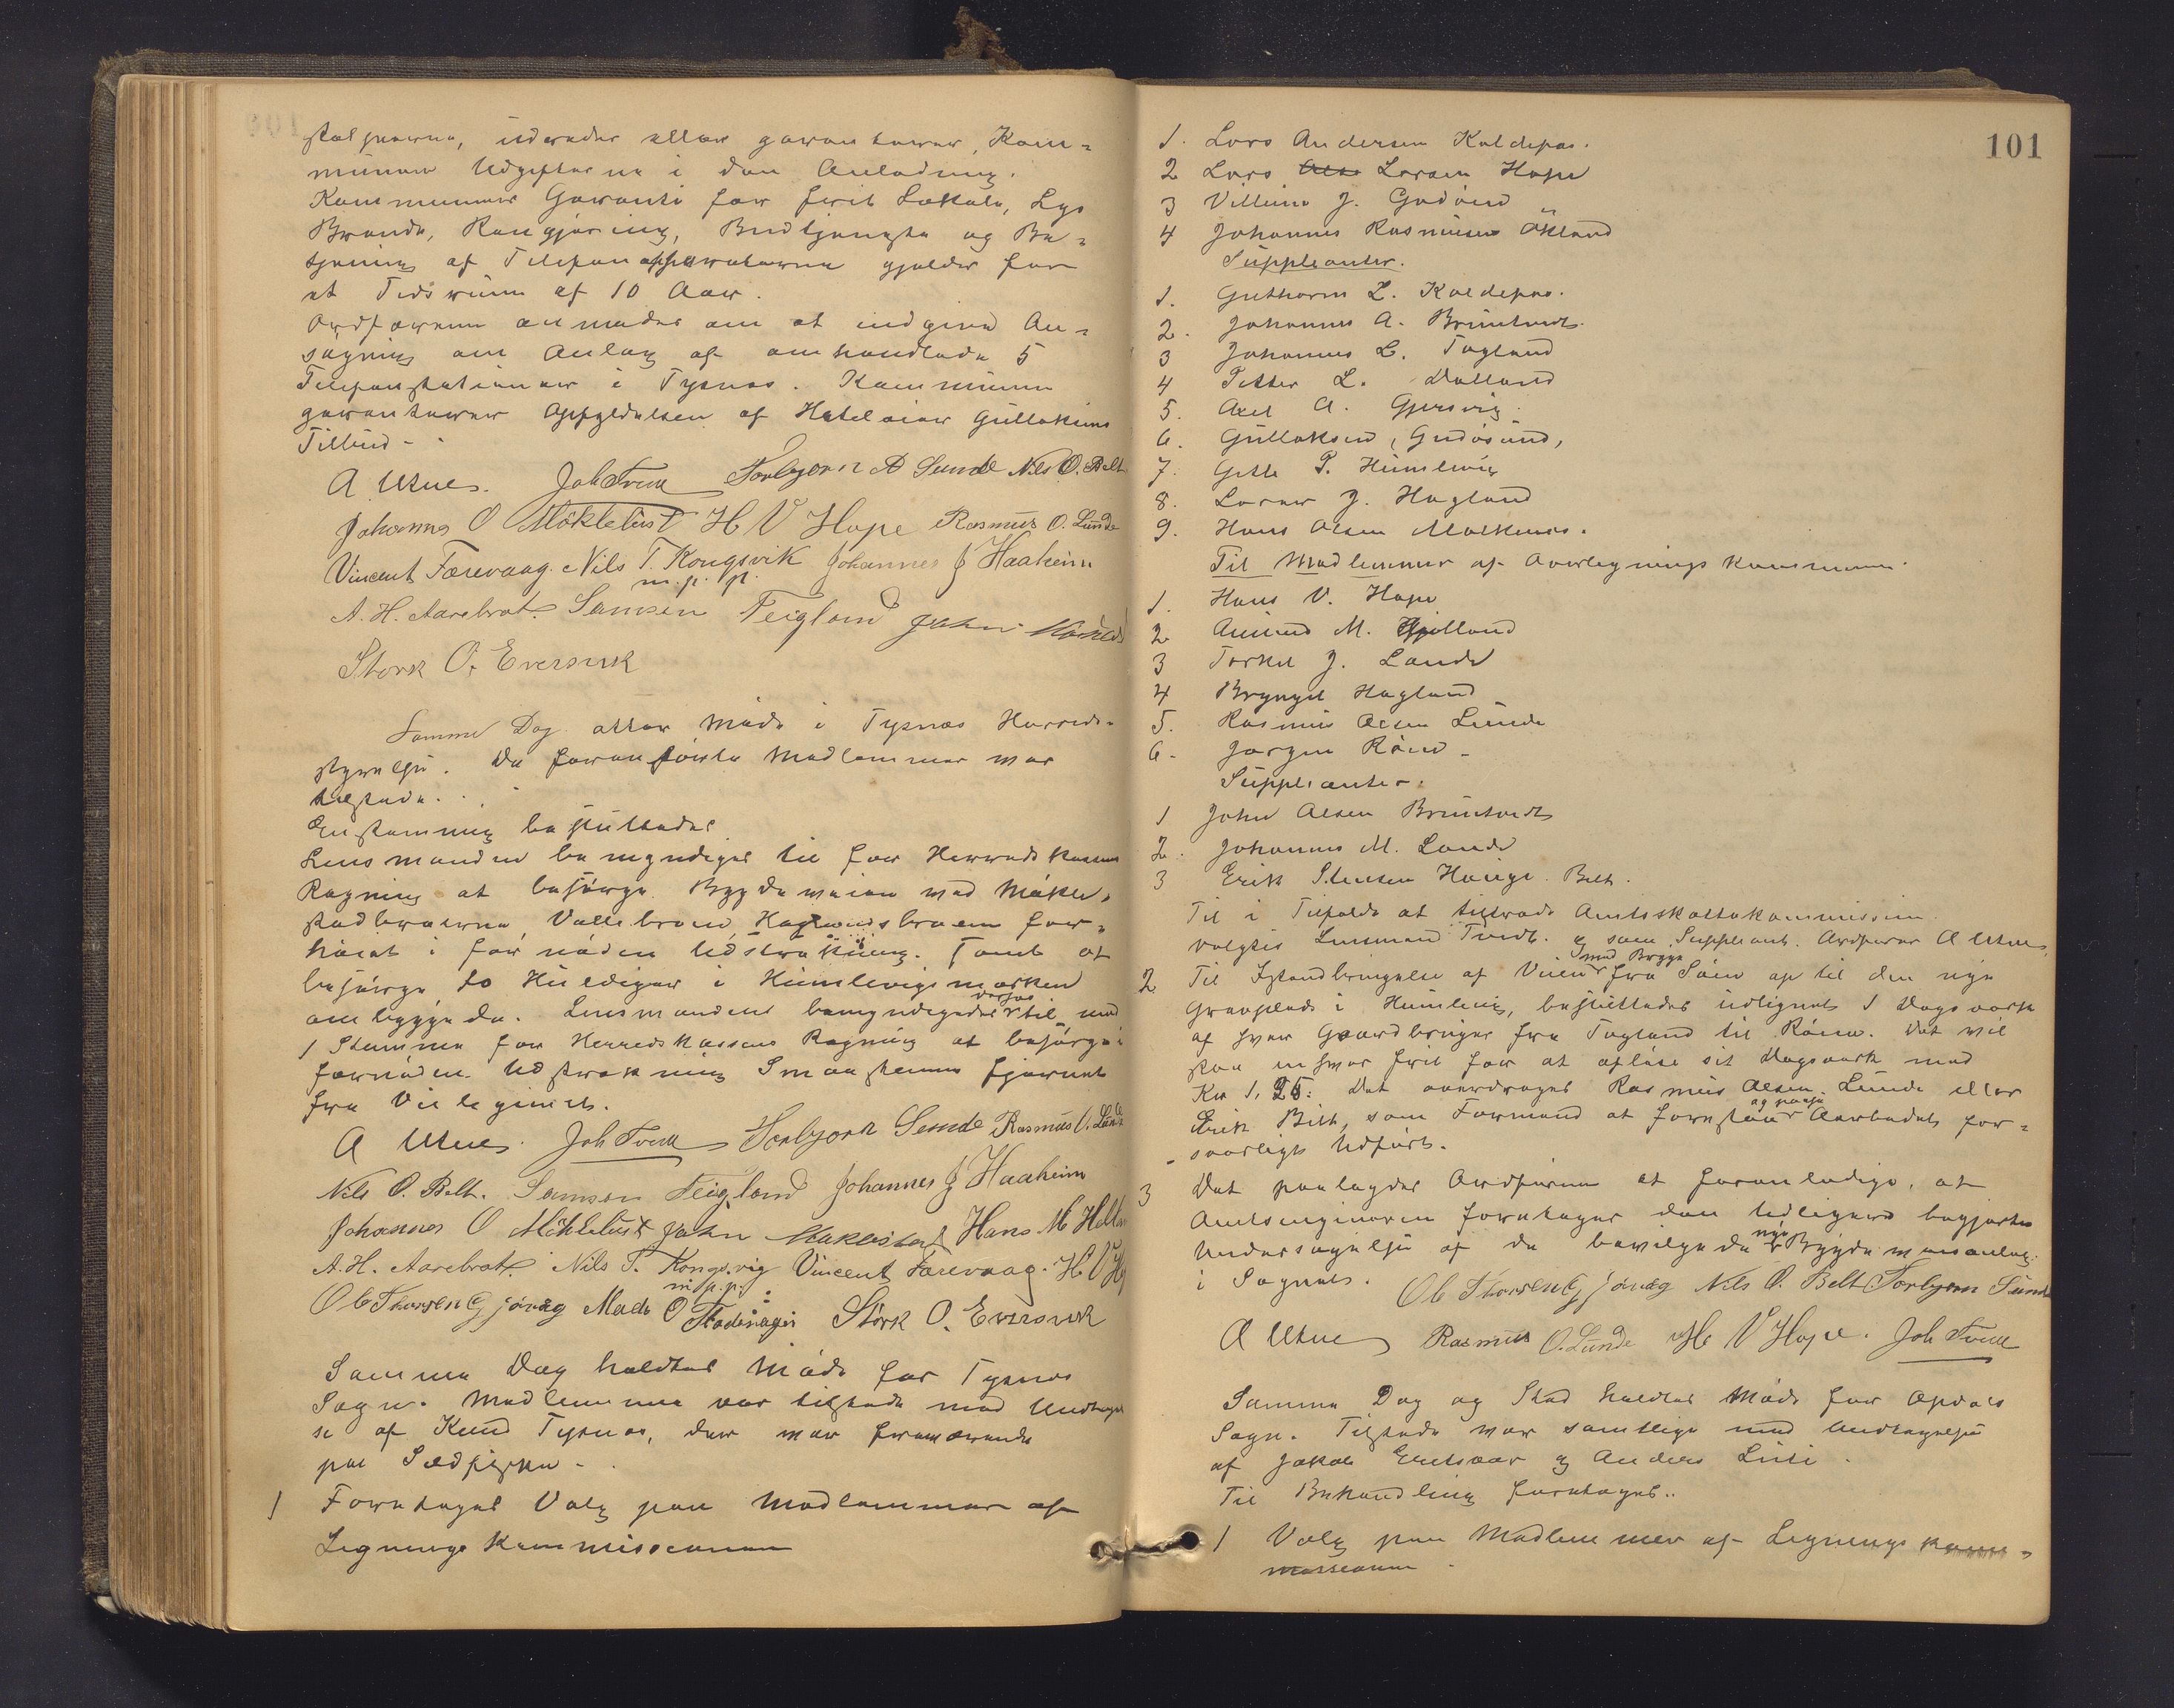 stolperne, udreder eller garanterer Kom-
munen Udgifterne i den Anledning.
Kommunens Garanti for frit Lokale, Lys
Brende, Rengjøring, Budtjeneste og Be-
tjening af Telefonapparaterne gjelder for
et Tidsrum af 10 Aar.
Ordføreren anmodes om at indgive An-
søgning om Anlæg af omhandlede 5
Telefonstationer i Tysnes. Kommunen
garanterer Opfyldelsen af Hoteleier Gullaksens
Tilbud -
A Utne. Joh Tveit Torbjørn A Sunde Nils O. Belt
Johannes O Møklebust H V Hope Rasmus O. Lunde
Vincent Færevaag. Nils T. Kongsvik Johannes J Haaheim
m. p. p.
A. H. Aarebrot. Samson Teigland John
Størk O. Eversvik
Samme Dag atter Møde i Tysnes Herreds-
styrelse. De foranførte Medlemmer var
tilstede.
Enstemmig besluttedes
Lensmanden bemyndiges til for Herredskassens
Regning at besørge Bygdeveien ved Møkle-
stadbroerne, Vallebroen, Haglandsbroen for-
høiet i fornøden Udstrækning. Samt at
besørge to Huldiger i Humlevigsmarken
ombyggede. Lensmanden bemyndigedes derhos til mod
1 Stemme for Herredskassens Regning at besørge i
fornøden Udstrækning Smaastenene fjernet
fra Veilegemet.
A Utne. Joh Tveit Torbjørn Sunde Rasmus O. Lunde
Nils O. Belt. Samson Teigland Johannes J Haaheim
Johannes O Møklebust John Hans M
A. H. Aarebrot. Nils T. Kongsvig Vincent Færevaag. H V
m. p. p.
Ole Thorsen Gjøvåg Mads O Størk O. Eversvik
Samme Dag holdtes Møde for Tysnes
Sogn. Medlemmene var tilstede med Undtagel
se af Knud Tysnes, der var fraværende
paa Sildfiske.
1 Foretoges Valg paa Medlemmer af
Ligningskommissionen
101
1. Lars Andersen Koldepas.
2 Lars Larsen Hope
3 Villum J. Godøsund
4 Johannes Rasmussen Økland
Suppleanter.
1. Guthorm L. Koldepas.
2. Johannes A. Bruntvedt.
3 Johannes L. Tøgland
4 Petter L. Dalland
5. Axel A. Gjersvig.
6. Gullaksen, Godøsund,
7. Gitle P. Humlevig
8. Lorens J. Hagland
9. Hans Olsen Malkenes.
Til Medlemmer af Overligningskommissionen.
1. Hans V. Hope
2 Amund M. Hjelland
3 Torkel J. Lande
4 Brynjel Hagland
5. Rasmus Olsen Lunde
6. Jørgen Røen -
Suppleanter.
1 John Olsen Bruntvedt
2. Johannes M. Lande
3 Erik Stensen Hauge Belt.
Til i Tilfælde at tiltræde Amtsskattekommissionen
valgtes Lensmand Tvedt. og som Suppleant. Ordfører A Utne
2. Til Istandbringelse af Veien med Brygge fra Søen op til den nye
Gravplads i Humlevig, besluttedes udlignet 1 Dagsværk
af hver Gaardbruger fra Tøgland til Røen. Det vil
staa enhver frit for at afløse sit Dagsværk med
Kr 1,25. Det overdroges Rasmus Olsen Lunde eller
Erik Belt, som Formand at forestaa og paase Arbeidet for-
svarligt Udført.
3 Det paalegges Ordføreren at foranledige, at
Amtsingeniøren foretager den tidligere begjærte
Undersøgelse af de bevilgede nye Bygdeveianlæg
i Sognet.
Ole Thorsen Gjøvåg Nils O. Belt Torbjørn Sunde
A Utne Rasmus O. Lunde H V Hope. Joh Tveit
Samme Dag og Sted holdtes Møde for Opdals
Sogn. Tilstede var samtlige med Undtagelse
af Jakob Eneksvær og Anders Lusi.
Til Behandling foretoges..
1 Valg paa Medlemmer af Lignings kom-
missionen